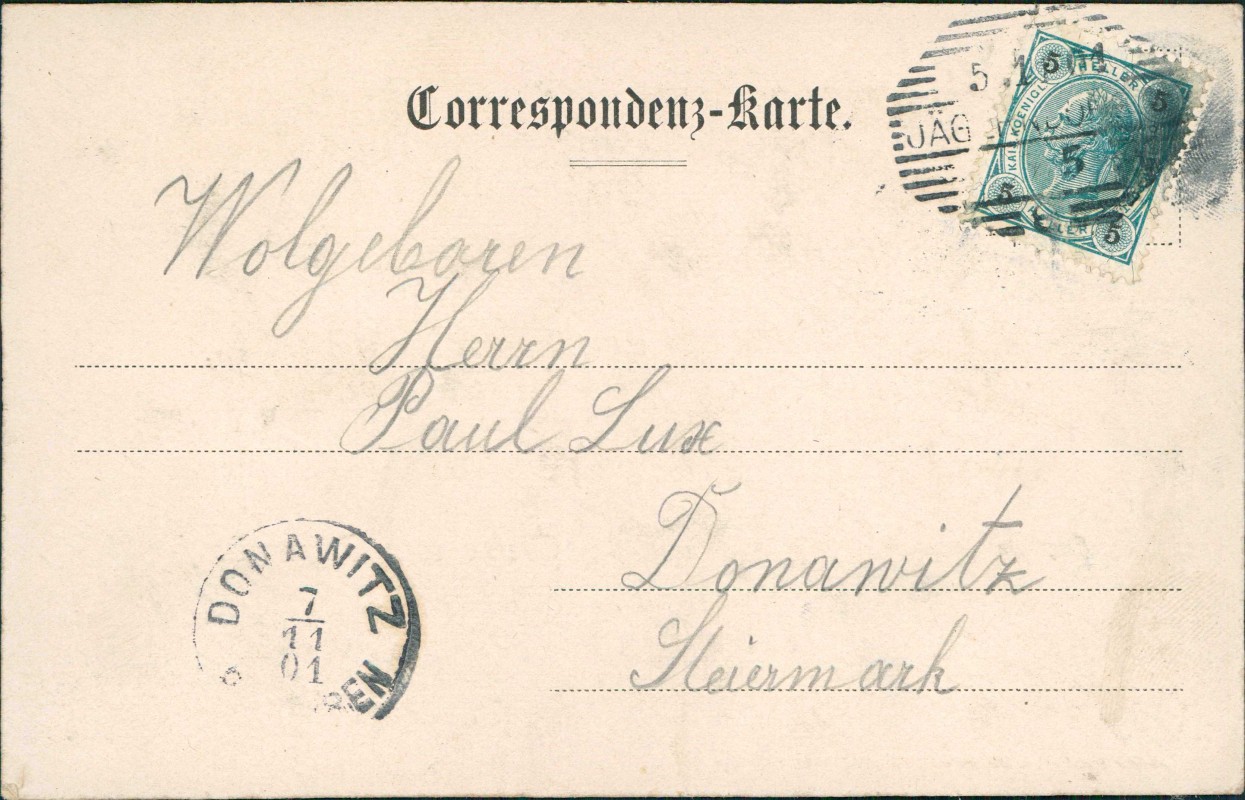 Correspondenz-Karte.
5 11 01
JÄG
5 5 5 5
KAIS. KOENIGL.
HELLER
5
HELLER
Wolgeboren
Herrn
Paul Lux
Donawitz
Steiermark
DONAWITZ
7
11
01